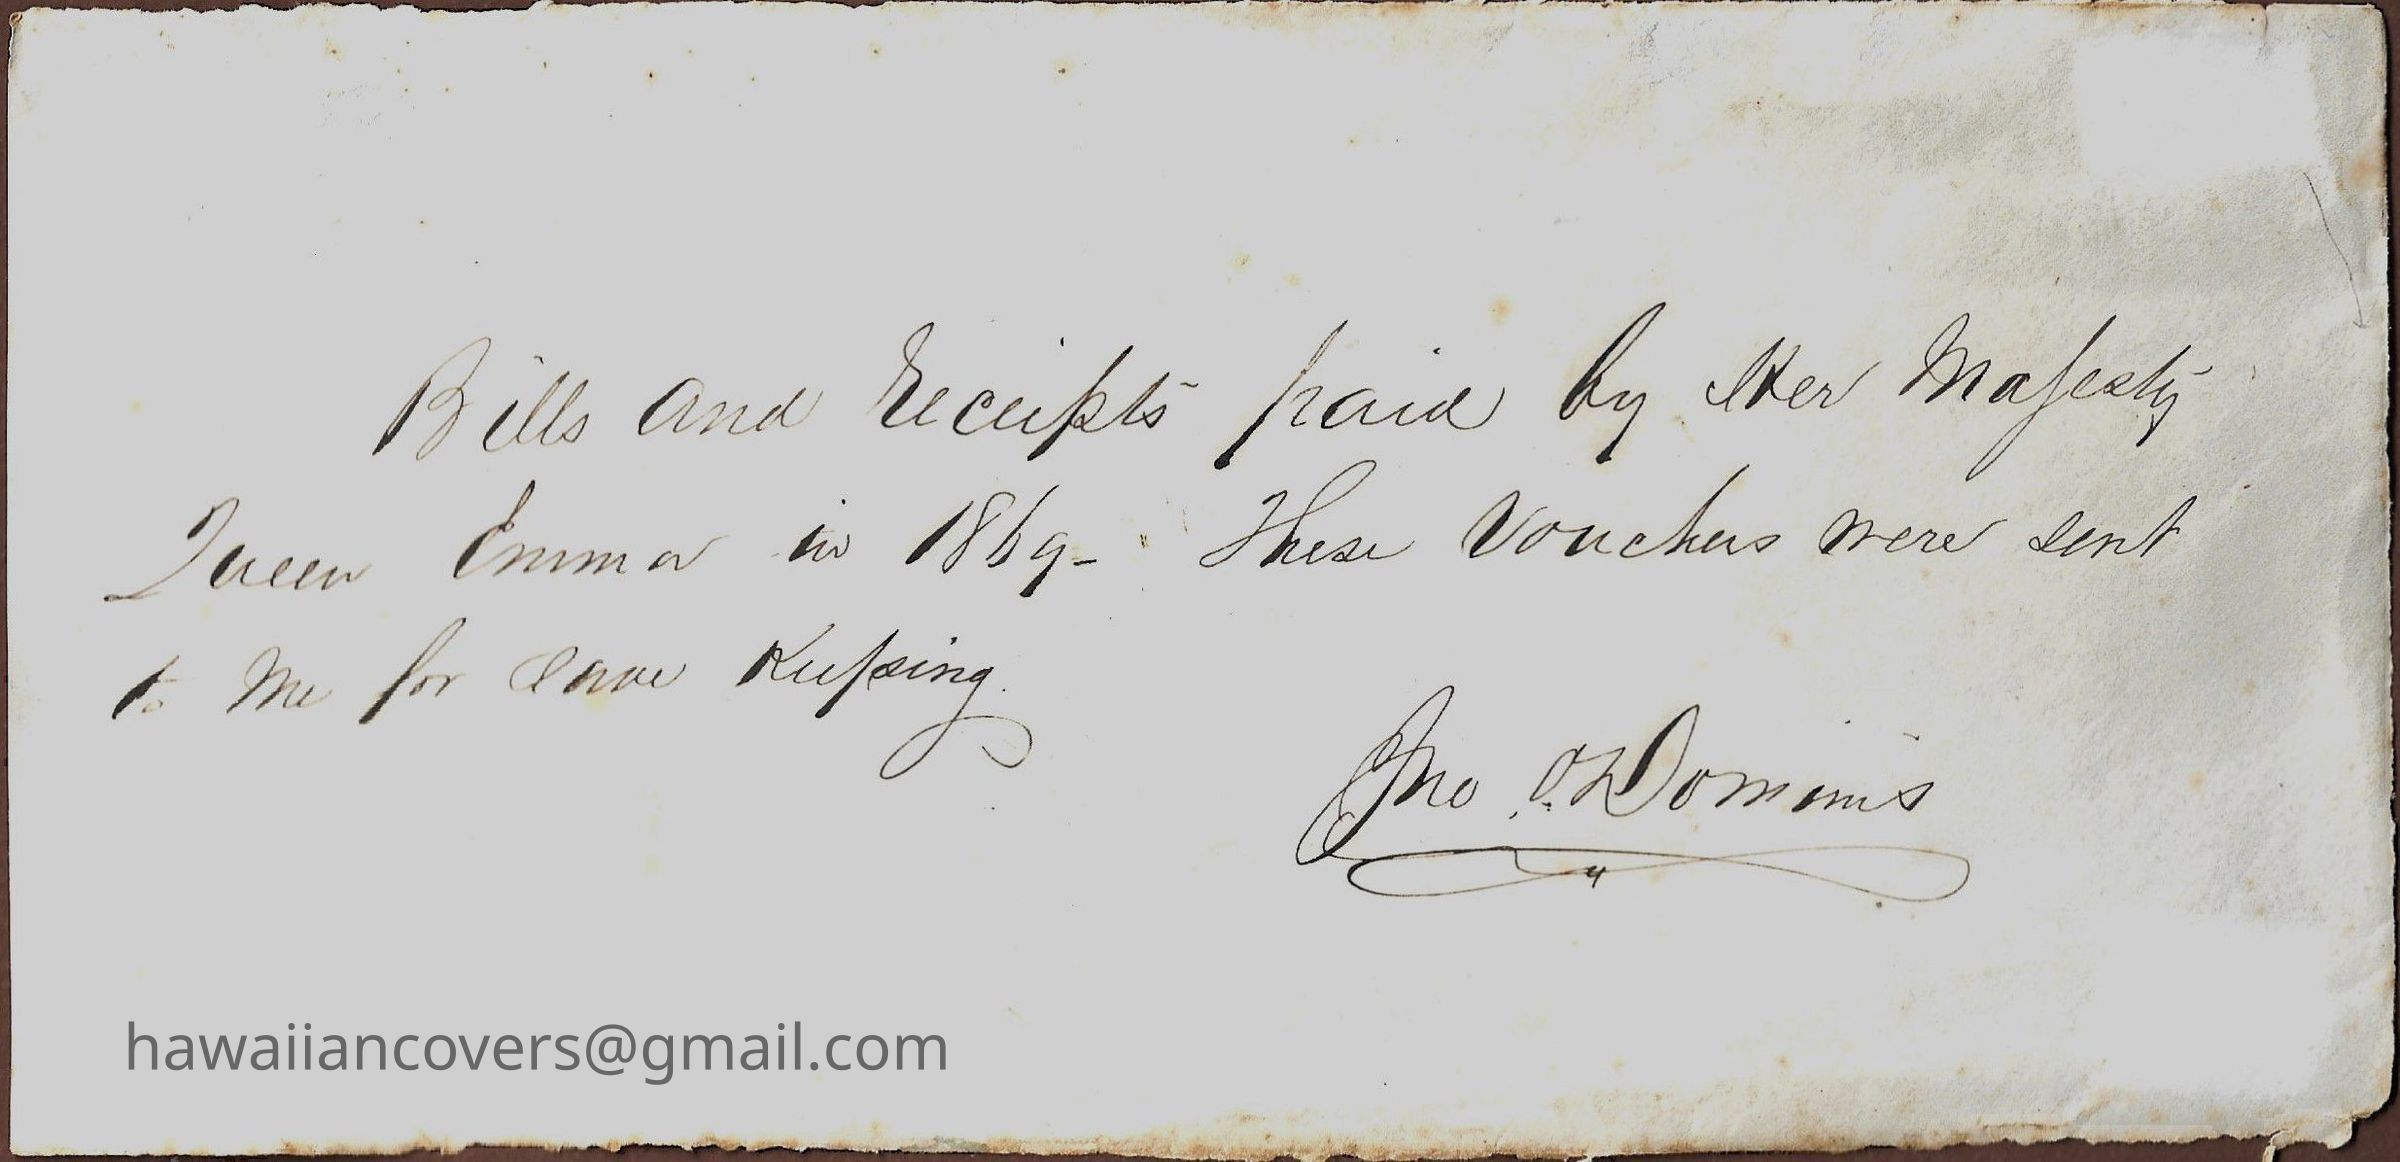 Bills and Receipts paid by Her Majesty
Queen Emma in 1869- These Vouchers were sent
to me for save Keeping.
Jno. O. Dominis
hawaiiancovers@gmail.com